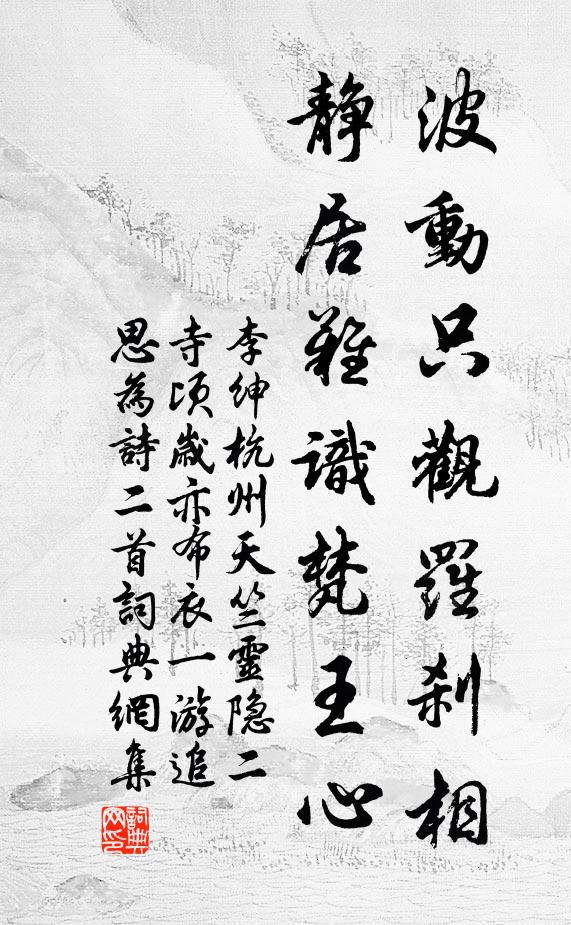 波動只觀羅刹相
静居難識梵王心
李紳杭州天竺靈隐二
寺頃歲亦布衣一游追
思為詩二首詞典網集
詞典
网印